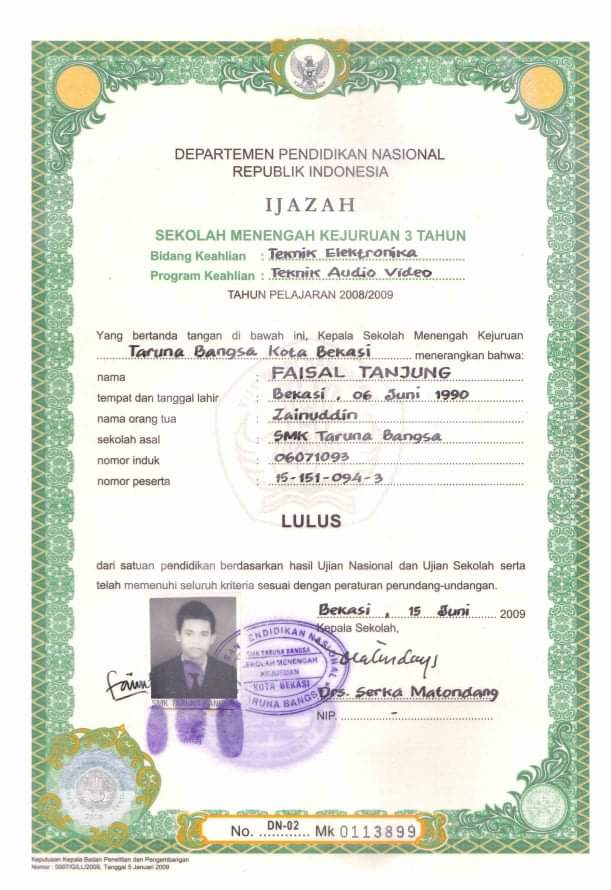 DEPARTEMEN PENDIDIKAN NASIONAL
REPUBLIK INDONESIA
IJAZAH
SEKOLAH MENENGAH KEJURUAN 3 TAHUN
Bidang Keahlian : Teknik Elektronika
Program Keahlian : Teknik Audio Video
TAHUN PELAJARAN 2008/2009
Yang bertanda tangan di bawah ini, Kepala Sekolah Menengah Kejuruan
Taruna Bangsa Kota Bekasi menerangkan bahwa:
nama : FAISAL TANJUNG
tempat dan tanggal lahir : Bekasi, 06 Juni 1990
nama orang tua : Zainuddin
sekolah asal : SMK Taruna Bangsa
nomor induk : 06071093
nomor peserta : 15-151-094-3
LULUS
dari satuan pendidikan berdasarkan hasil Ujian Nasional dan Ujian Sekolah serta
telah memenuhi seluruh kriteria sesuai dengan peraturan perundang-undangan.
Bekasi, 15 Juni 2009
Kepala Sekolah,
PENDIDIKAN NASIONAL
SMK TARUNA BANGSA
SEKOLAH MENENGAH
KEJURUAN
KOTA BEKASI
TARUNA BANGSA
Drs. Serka Matondang
NIP. -
No. DN-02 Mk 0113899
Keputusan Kepala Badan Penelitian dan Pengembangan
Nomor : 0007/G/LL/2009, Tanggal 5 Januari 2009